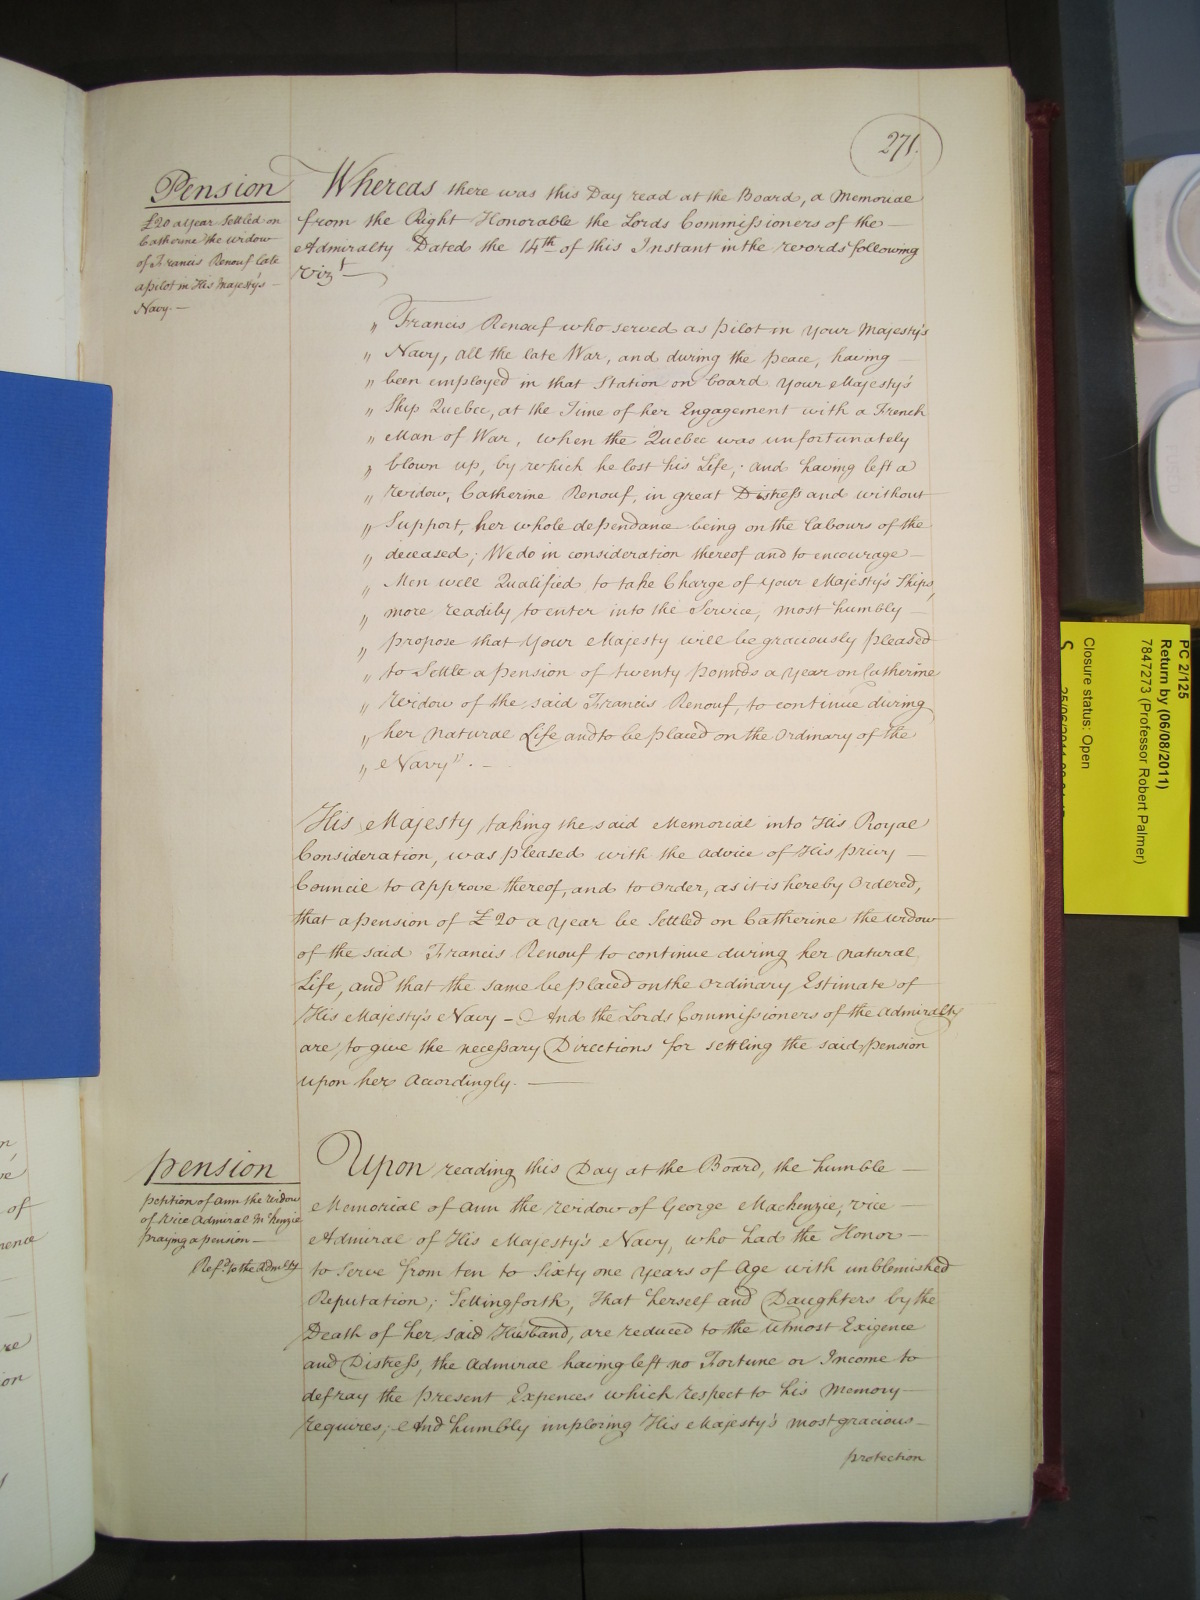 271.
Pension
£20 a Year Settled on
Catherine the widow
of Francis Renouf late
a pilot in His Majesty's
Navy.
Whereas there was this Day read at the Board, a Memorial
from the Right Honorable the Lords Commissioners of the
Admiralty Dated the 14th of this Instant in the words following
Vizt
„ Francis Renouf who served as pilot in Your Majesty's
„ Navy, all the late War, and during the peace, having
„ been employed in that Station on board Your Majesty's
„ Ship Quebec, at the Time of her Engagement with a French
„ Man of War, when the Quebec was unfortunately
„ blown up, by which he lost his Life; and having left a
„ Widow, Catherine Renouf, in great Distress and without
„ Support, her whole dependance being on the Labours of the
„ deceased; We do in consideration thereof and to encourage
„ Men well Qualified to take Charge of Your Majesty's Ships,
„ more readily to enter into the Service, most humbly
„ propose that Your Majesty will be graciously pleased
„ to Settle a pension of twenty pounds a Year on Catherine
„ Widow of the said Francis Renouf, to continue during
„ her natural Life and to be placed on the Ordinary of the
„ Navy".
His Majesty taking the said Memorial into His Royal
Consideration, was pleased with the advice of His privy
Council to Approve thereof, and to Order, as it is hereby Ordered,
that a pension of £20 a Year be Settled on Catherine the widow
of the said Francis Renouf to continue during her natural
Life, and that the same be placed on the Ordinary Estimate of
His Majesty's Navy - And the Lords Commissioners of the Admiralty
are to give the necessary Directions for settling the said pension
upon her Accordingly.
pension
petition of Ann the Widow
of Vice Admiral McKenzie
praying a pension
Refd. to the Admlty
Upon reading this Day at the Board, the humble
Memorial of Ann the Widow of George Mackenzie, Vice
Admiral of His Majesty's Navy, who had the Honor
to Serve from ten to Sixty one Years of Age with unblemished
Reputation; Setting forth, That herself and Daughters by the
Death of her said Husband, are reduced to the utmost Exigence
and Distress, the Admiral having left no Fortune or Income to
defray the present Expences which respect to his Memory
requires; And humbly imploring His Majesty's most gracious
protection
PC 2/125
Return by (06/08/2011)
7847273 (Professor Robert Palmer)
Closure status: Open
S
of